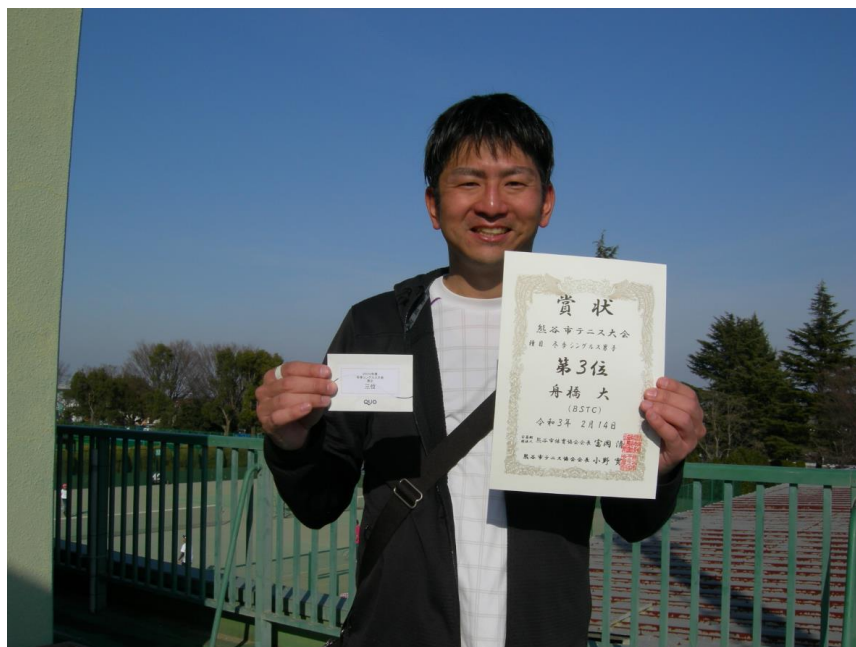 三位
QUO
賞状
熊谷市テニス大会
種目 冬季シングルス男子
第3位
舟橋 大
(BSTC)
令和3年 2月14日
熊谷市体育協会会長 富岡 清
熊谷市テニス協会会長 小野